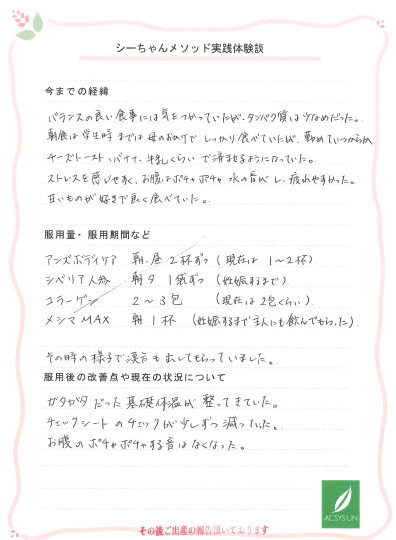 シーちゃんメソッド実践体験談
今までの経緯
バランスの良い食事には気をつかっていたが、タンパク質は少なめだった。
朝食は学生時までは母のおかげでしっかり食べていたが、勤めていつからか
チーズトースト バナナ、牛乳くらいで済ませるようになっていた。
ストレスを感じやすく、お腹はポチャポチャ 水の音がし、疲れやすかった。
甘いものが好きで良く食べていた。
服用量・服用期間など
アンズボディケア 朝、昼 2杯ずつ (現在は 1〜2杯)
シベリア人参 朝夕 1袋ずつ (妊娠するまで)
コラーゲン 2〜3包 (現在は2包くらい)
メシマMAX 朝 1杯 (妊娠するまで主人にも飲んでもらった)
その時の様子で漢方も出してもらっていました。
服用後の改善点や現在の状況について
ガタガタだった基礎体温が整ってきていた。
チェックシートのチェックが少しずつ減っていた。
お腹のポチャポチャする音はなくなった。
その後ご出産の報告頂いております
ACSYS'LIN